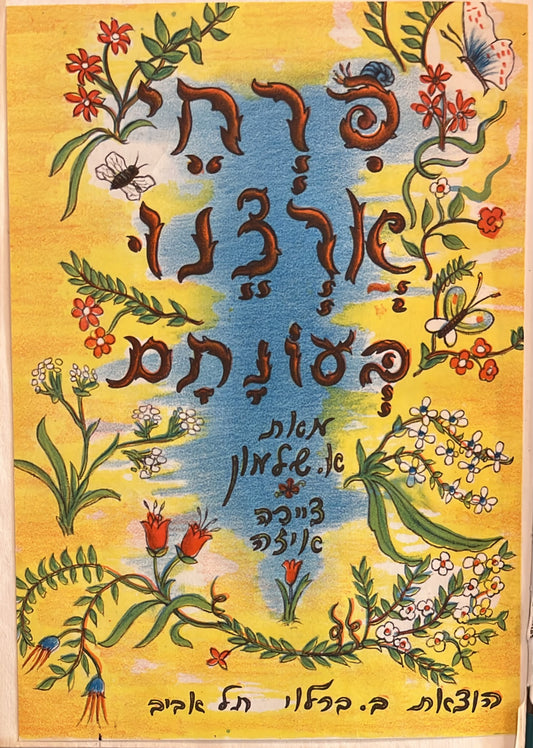 פִּרְחֵי
אַרְצֵנוּ
בְּעוֹנָתָם
מאת
א. שלמון
ציירה
אויזה
הוצאת ב. ברלוי תל אביב